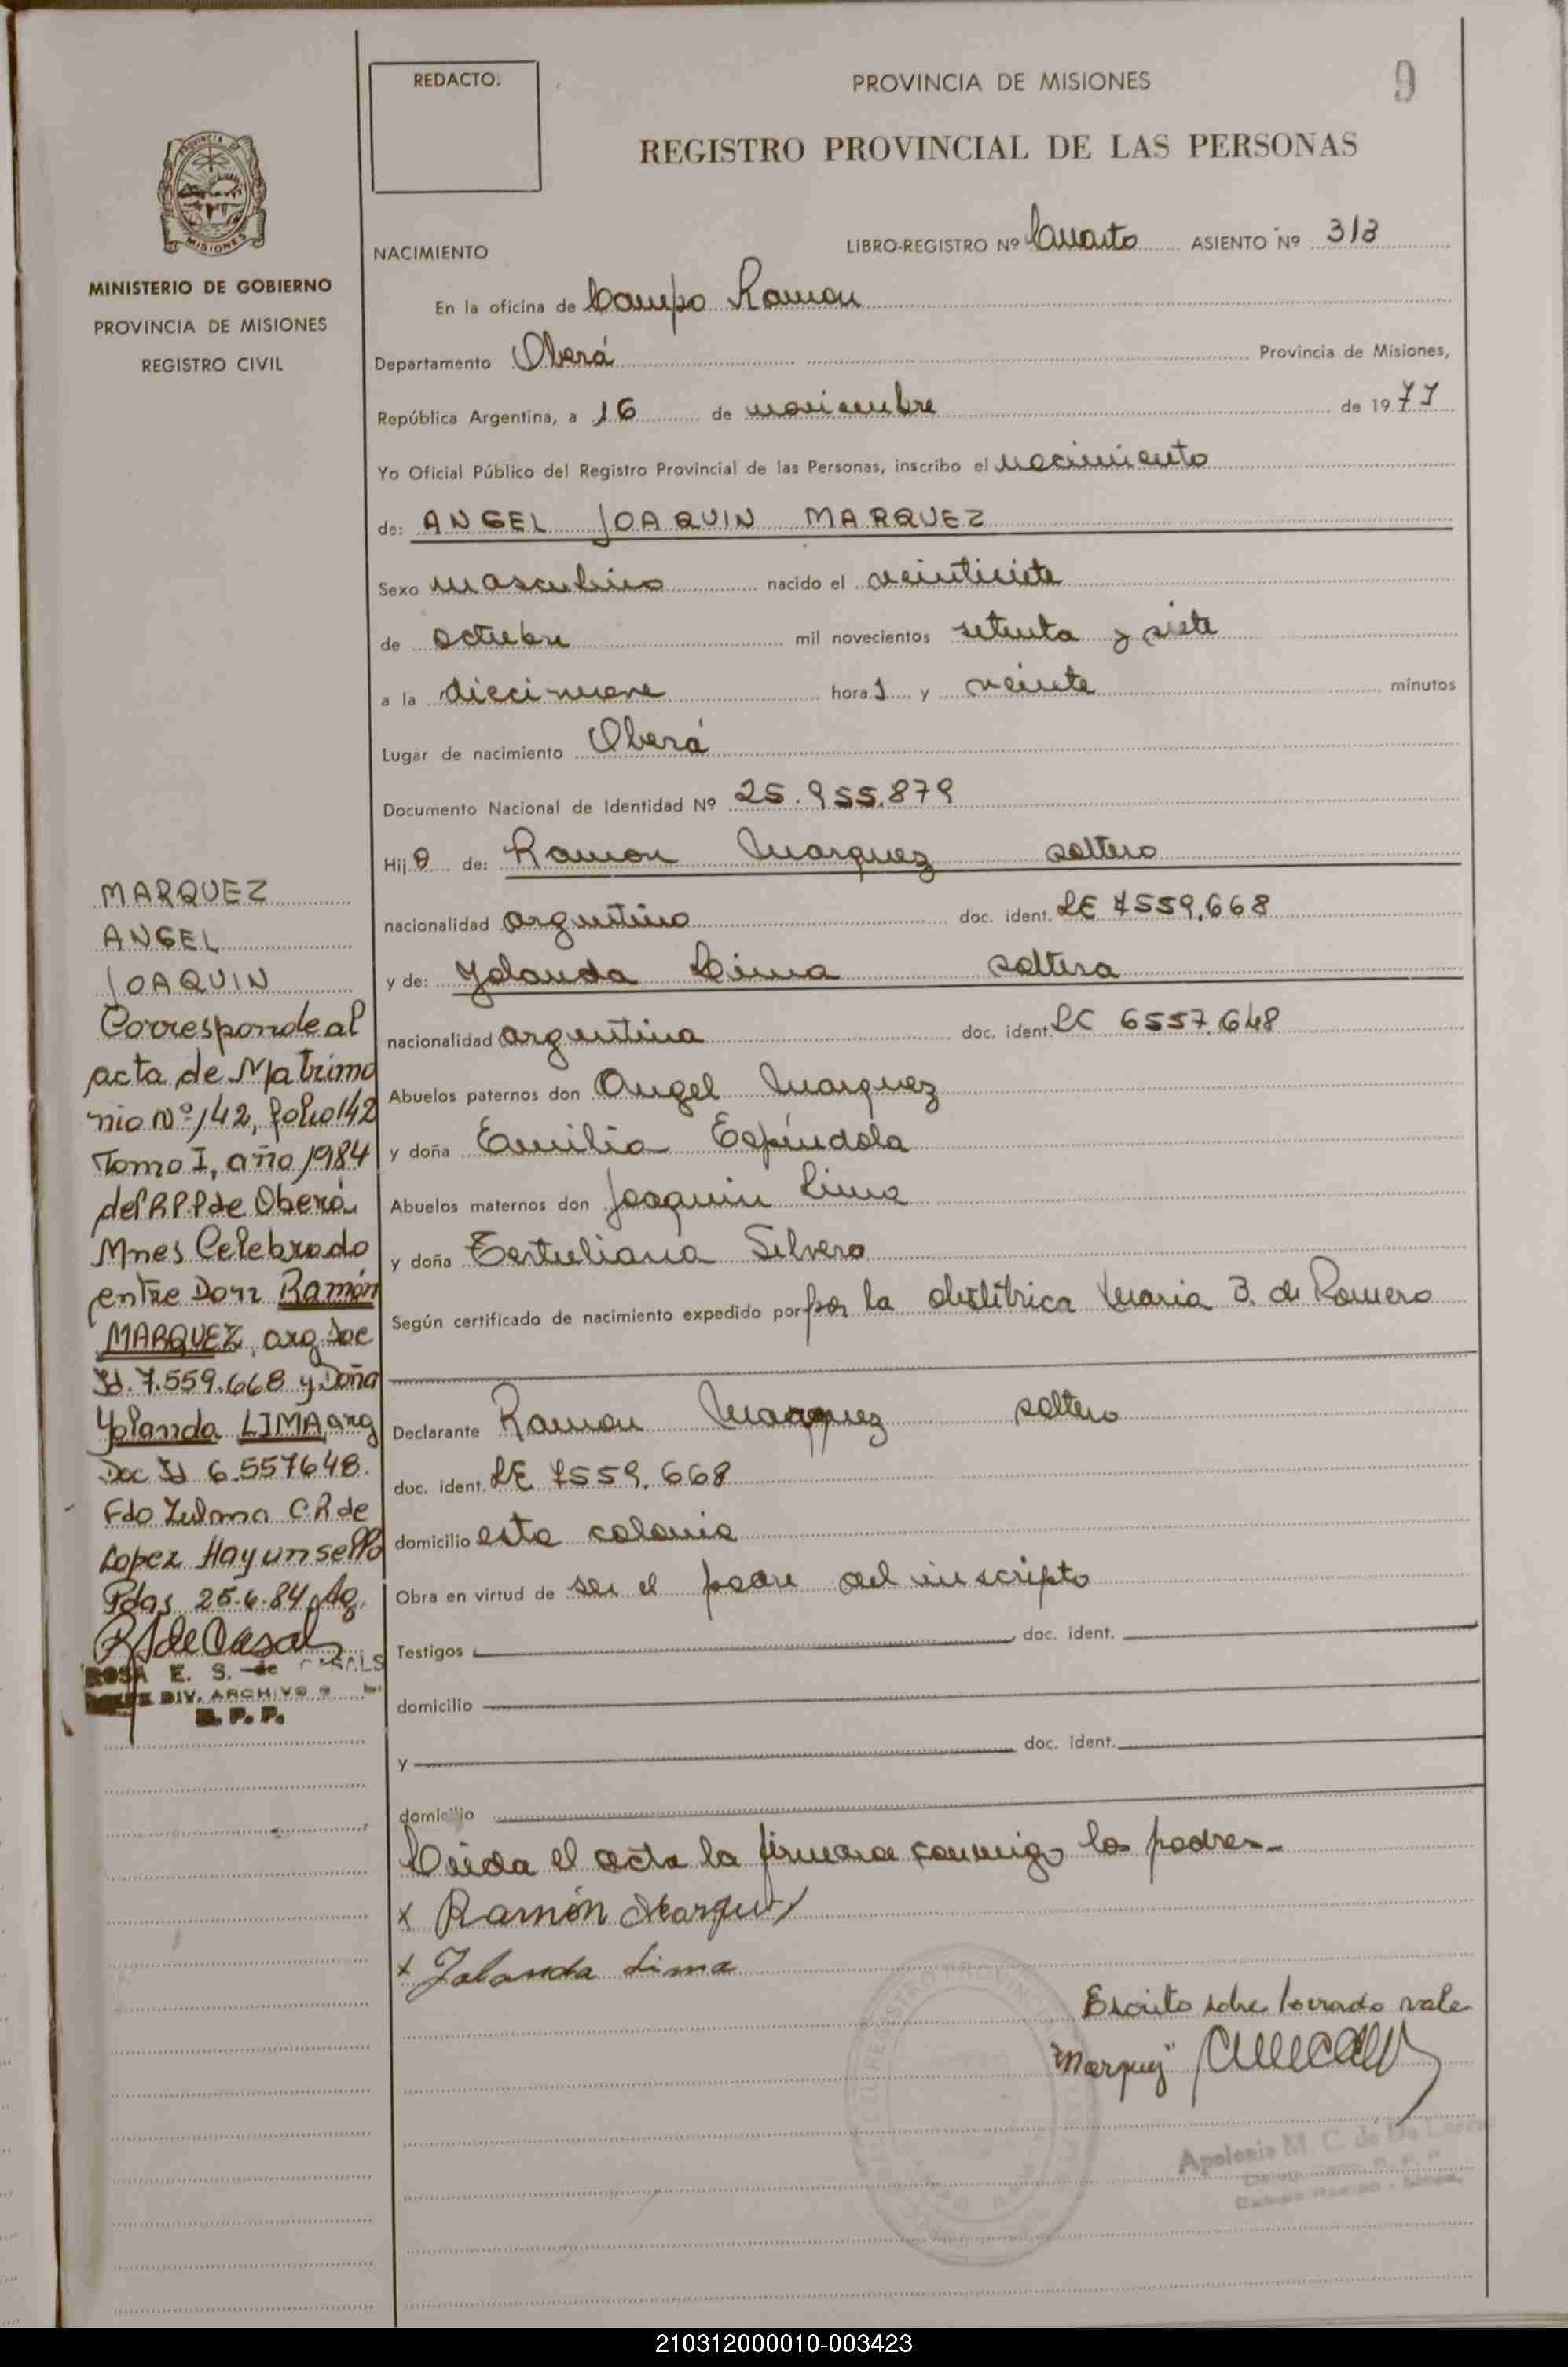 REDACTO.
PROVINCIA DE MISIONES
9
REGISTRO PROVINCIAL DE LAS PERSONAS
PROVINCIA
MISIONES
MINISTERIO DE GOBIERNO
PROVINCIA DE MISIONES
REGISTRO CIVIL
NACIMIENTO
LIBRO-REGISTRO Nº Cuarto ASIENTO Nº 313
En la oficina de Campo Ramon
Departamento Oberá Provincia de Misiones,
República Argentina, a 16 de noviembre de 1977
Yo Oficial Público del Registro Provincial de las Personas, inscribo el nacimiento
de: ANGEL JOAQUIN MARQUEZ
Sexo masculino nacido el veintisiete
de octubre mil novecientos setenta y siete
a la diecinueve hora s y veinte minutos
Lugar de nacimiento Oberá
Documento Nacional de Identidad Nº 25.955.879
Hijo de: Ramon Marquez soltero
nacionalidad argentino doc. ident. LE 7559.668
y de: Yolanda Lima soltera
nacionalidad argentina doc. ident. LC 6557.648
Abuelos paternos don Angel Marquez
y doña Emilia Espíndola
Abuelos maternos don Joaquin Lima
y doña Tertuliana Silvero
Según certificado de nacimiento expedido por por la obstétrica Maria B. de Romero
Declarante Ramon Marquez soltero
doc. ident. LE 7559.668
domicilio esta colonia
Obra en virtud de ser el padre del inscripto
Testigos doc. ident.
domicilio
y doc. ident.
domicilio
Leida el acta la firman conmigo los padres-
x Ramón Marquez
x Yolanda Lima
Escrito sobre borrado vale
"Marquez"
Apolonia M. C. de De
MARQUEZ
ANGEL
JOAQUIN
Corresponde al
acta de Matrimo
nio Nº 142, folio 142
Tomo I, año 1984
del RPP de Oberá
Mnes Celebrado
entre Don Ramón
MARQUEZ, arg. Doc
Id. 7.559.668 y Doña
Yolanda LIMA, arg
Doc Id 6.557648.
Fdo Zulma C R de
Lopez Hay un sello
Pdas 25.6.84 Ag.
RSdeCasals
ROSA E. S. de CASALS
JEFE DIV. ARCHIVO
R. P. P.
210312000010-003423